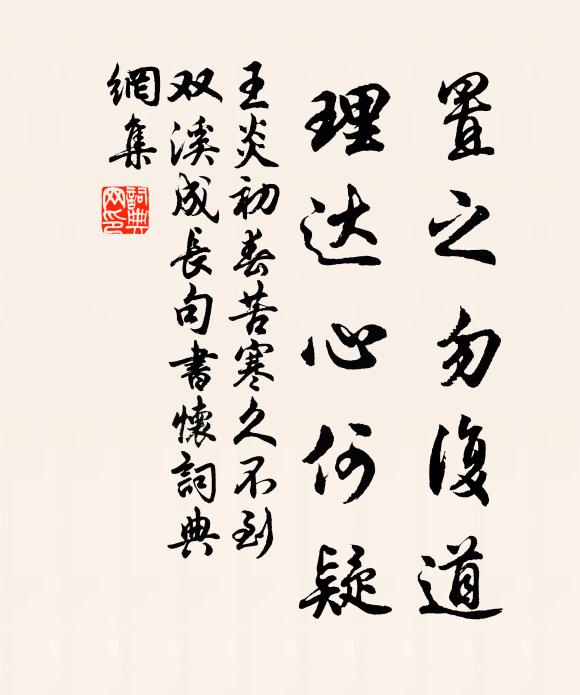 置之勿復道
理达心何疑
王炎初春苦寒久不到
双溪成長句書懷詞典
網集
詞典網印